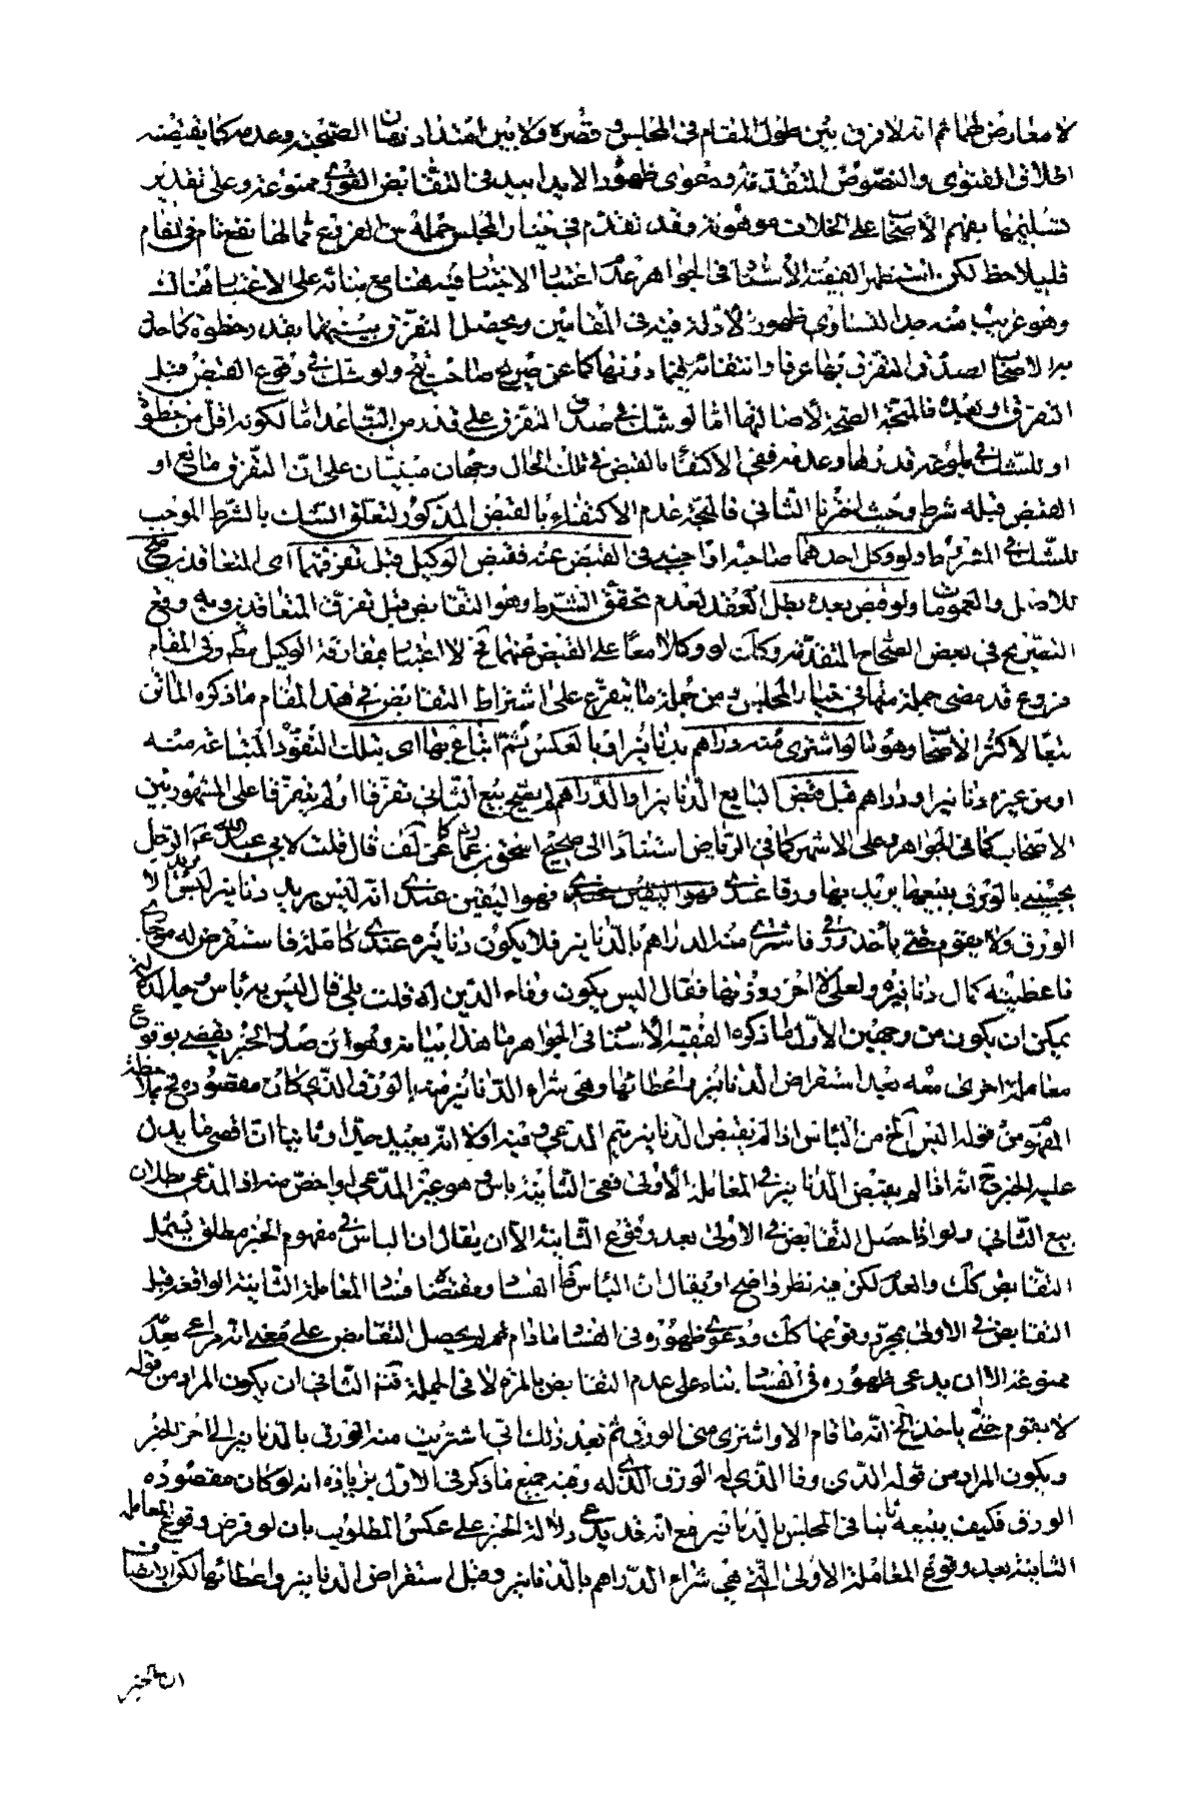 لا معارض لها ثم انه لا فرق بين طول المقام فى المجلس و قصره ولا بين امتداد زمان الصحبة وعدمه كما يقتضيه
اطلاق الفتوى والنصوص المتقدمة ودعوى ظهور الا يدا بيد فى التقابض الفورى ممنوعة وعلى تقدير
تسليمها بفهم الاصحاب على الخلاف موهونة وقد تقدم فى خيار المجلس جملة من الفروع فما لها نفع تام فى المقام
فليلاحظ لكن استظهر الفقيه الأستاد فى الجواهر عدم اعتبار الاختيار فيه هنا مع بنائه على الاعتبار هناك
وهو غريب منه جدا لتساوى ظهور الأدلة فيه فى المقامين ويحصل التفرق بينهما بقدر خطوة كما حده
به الاصحاب لصدق التفرق بها عرفا وانتفائه فيما دونها كما عن صريح صاحب ولو شك فى وقوع القبض قبل
التفرق او بعده فالمتجه الصحة لأصالتها اما لو شك فى صدق التفرق على قدر من التباعد اما لكونه اقل من خطوة
او للشك فى بلوغه قدرها وعدمه ففى الاكتفاء بالقبض فى تلك الحال وجهان مبنيان على ان التفرق مانع او
القبض قبله شرط وحيث اخترنا الثانى فالمتجه عدم الاكتفاء بالقبض المذكور لتعلق الشك بالشرط الموجب
للشك فى المشروط ولو وكل احدهما صاحبه او اجنبى فى القبض عنه فقبض الوكيل قبل تفرقهما اى المتعاقدين صح
للاصل والعمومات ولو قبض بعده بطل العقد لعدم تحقق الشرط وهو التقابض قبل تفرق المتعاقدين وبه وقع
التصريح فى بعض الصحاح المتقدمة وكذا لو وكلا معا على القبض عنهما فح لا اعتبار بمفارقة الوكيل مطلقا وفى المقام
فروع قد مضى جملة منها فى خيار المجلس ومن جملة ما يتفرع على اشتراط التقابض فى هذا المقام ما ذكره الماتن
تبعا لاكثر الاصحاب وهو ما لو اشترى منه دراهم بدنانير او بالعكس ثم ابتاع بها اى بتلك النقود المبتاعة منه
او من غيره دنانير او دراهم قبل قبض البايع الدنانير او الدراهم لم يصح بيع الثانى تفرقا او لم يتفرقا على المشهور بين
الاصحاب كما فى الجواهر وعلى الاشهر كما فى الرياض استنادا الى صحيح اسحق بن عمار قال قلت لابى عبد الله ع الرجل
يجيئنى بالورق يبيعها يريد بها ورقا عندى فهو اليقين عندى انه ليس يريد دنانير ليس يريد الا
الورق ولا يقوم حتى ياخذ ورقى فاشترى منه الدراهم بالدنانير فلا يكون دنانيره عندى كاملة فاستقرض له من جارى
فاعطيته كمال دنانيره ولعلى لا احرز وزنها فقال اليس يكون وفاء الذى له قلت بلى قال ليس به باس
يمكن ان يكون من وجهين الاول ما ذكره الفقيه الأستاد فى الجواهر ما هذا بيانه وهو ان صدر الخبر يقضى بوقوع
معاملة اخرى منه بعد استقراض الدنانير واعطائها وهى شراء الدنانير منه بالورق الذى كان مقصوده فح بملاحظة
المفهوم من قوله اليس الخ من الباس اذا لم يقبض الدنانير يتم المدعى وفيه اولا انه بعيد جدا وثانيا ان اقصى ما يدل
عليه الخبر ح انه اذا لم يقبض الدنانير فى المعاملة الأولى ففى الثانية باس وهو غير المدعى او اخص منه اذ المدعى بطلان
بيع الثانى ولو اذا حصل التقابض فى الاولى بعد وقوع الثانية الا ان يقال ان الباس فى مفهوم الخبر مطلق يشمل
التقابض كك والعدم لكن فيه نظر واضح او يقال ان الباس ظ الفساد ومقتضاه فساد المعاملة الثانية الواقعة قبل
التقابض فى الاولى بمجرد وقوعها كك ودعوى ظهوره فى الفساد مادام لم يحصل التقابض على معنى انه مراعى بعدمه
ممنوعة الا ان يدعى ظهوره فى الفساد بناء على عدم التقابض بالمرة لا فى الجملة فتم الثانى ان يكون المراد من قوله
لا يقوم حتى ياخذ الخ انه ما قام الا واشترى منى الورق ثم بعد ذلك انى اشتريت منه الورق بالدنانير الى اخر الخبر
ويكون المراد من قوله الذى وفا الذى له الورق الذى له وفيه جميع ما ذكر فى الاول بزيادة انه لو كان مقصوده
الورق فكيف يبيعه ثانيا فى المجلس بالدنانير مع انه قد يدعى دلالة الخبر على عكس المطلوب بان لو فرض وقوع المعاملة
الثانية بعد وقوع المعاملة الاولى التى هى شراء الدراهم بالدنانير وقبل استقراض الدنانير واعطائها لكون